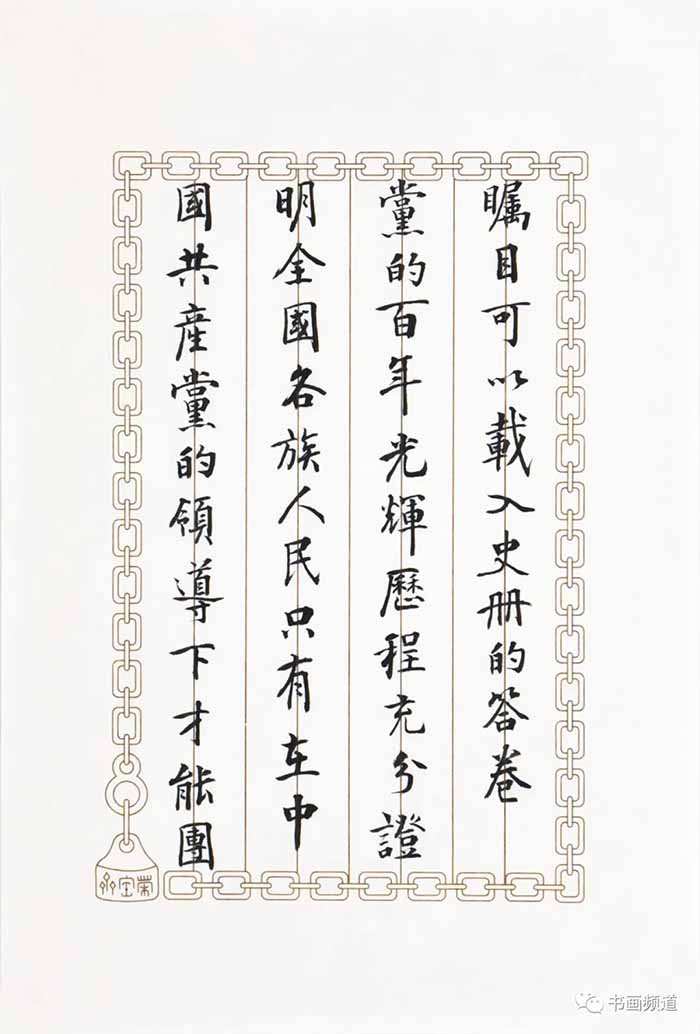 矚目可以載入史册的答卷
黨的百年光輝歷程充分證
明全國各族人民只有在中
國共產黨的領導下才能團
榮宝斋
书画频道